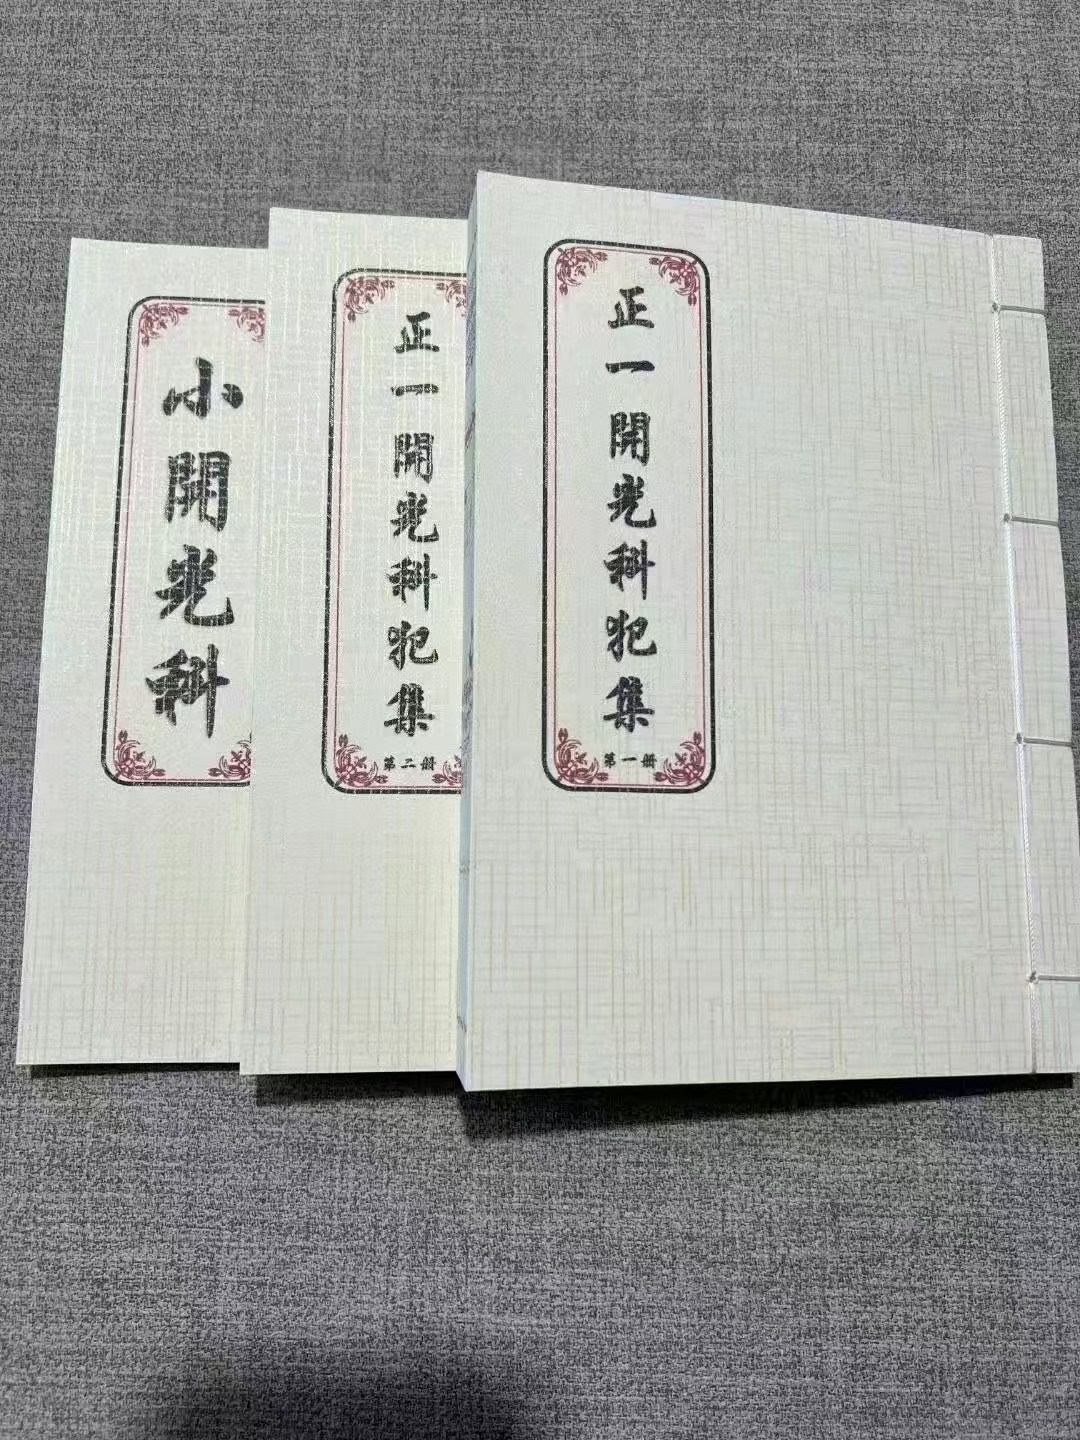 正一開光科犯集
第一册
正一開光科犯集
第二册
小開光科